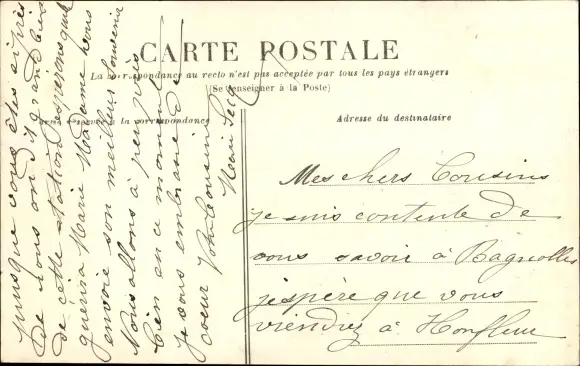 CARTE POSTALE
La correspondance au recto n'est pas acceptée par tous les pays étrangers
(Se renseigner à la Poste)
à la correspondance
Adresse du destinataire
Mes chers Cousins
je suis contente de
vous savoir à Bagnolles
j'espère que vous
viendrez à Honfleur
puisque vous êtes si près
De nous on dit grand bien
de cette station esperons quil
guerira Marie Madame nous
envoie son meilleur souvenir
Nous allons à peu près
bien en ce moment
je vous embrasse de
coeur Votre Cousine